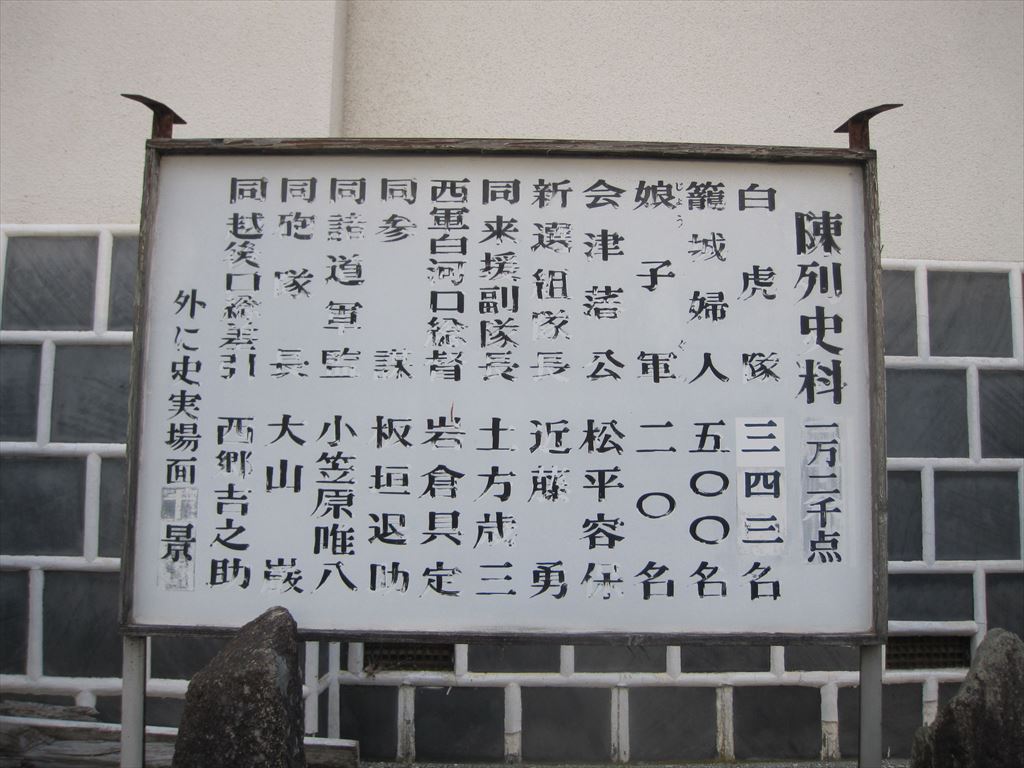 陳列史料 一万二千点
白虎隊 三四三名
籠城婦人 五〇〇名
娘子軍 二〇名
じょう ぐ
会津藩公 松平容保
新選組隊長 近藤勇
同来援副隊長 土方歳三
西軍白河口総督 岩倉具定
同参謀 板垣退助
同諸道軍監 小笠原唯八
同砲隊長 大山巌
同越後口総差引 西郷吉之助
外に史実場面十景